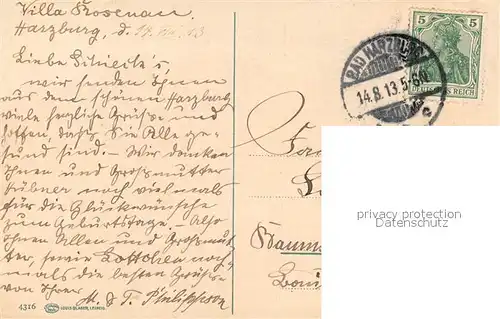 Villa Rosenau
Harzburg, d. 14.VIII.13
Liebe
wir senden Ihnen
aus dem schönen Harzburg
viele herzliche Grüsse und
hoffen, dass Sie Alle ge-
sund sind. Wir danken
Ihnen und Grossmutter
Hübner noch vielmals
für die Glückwünsche
zum Geburtstage. Also
Ihnen Allen und Grossmut-
ter, sowie Lottchen noch-
mals die besten Grüsse
von Ihrer
M. & T. Philippson
4316
BAD HARZBURG
14.8.13.5-6N
c
5 5
DEUTSCHES REICH
privacy protection
Datenschutz